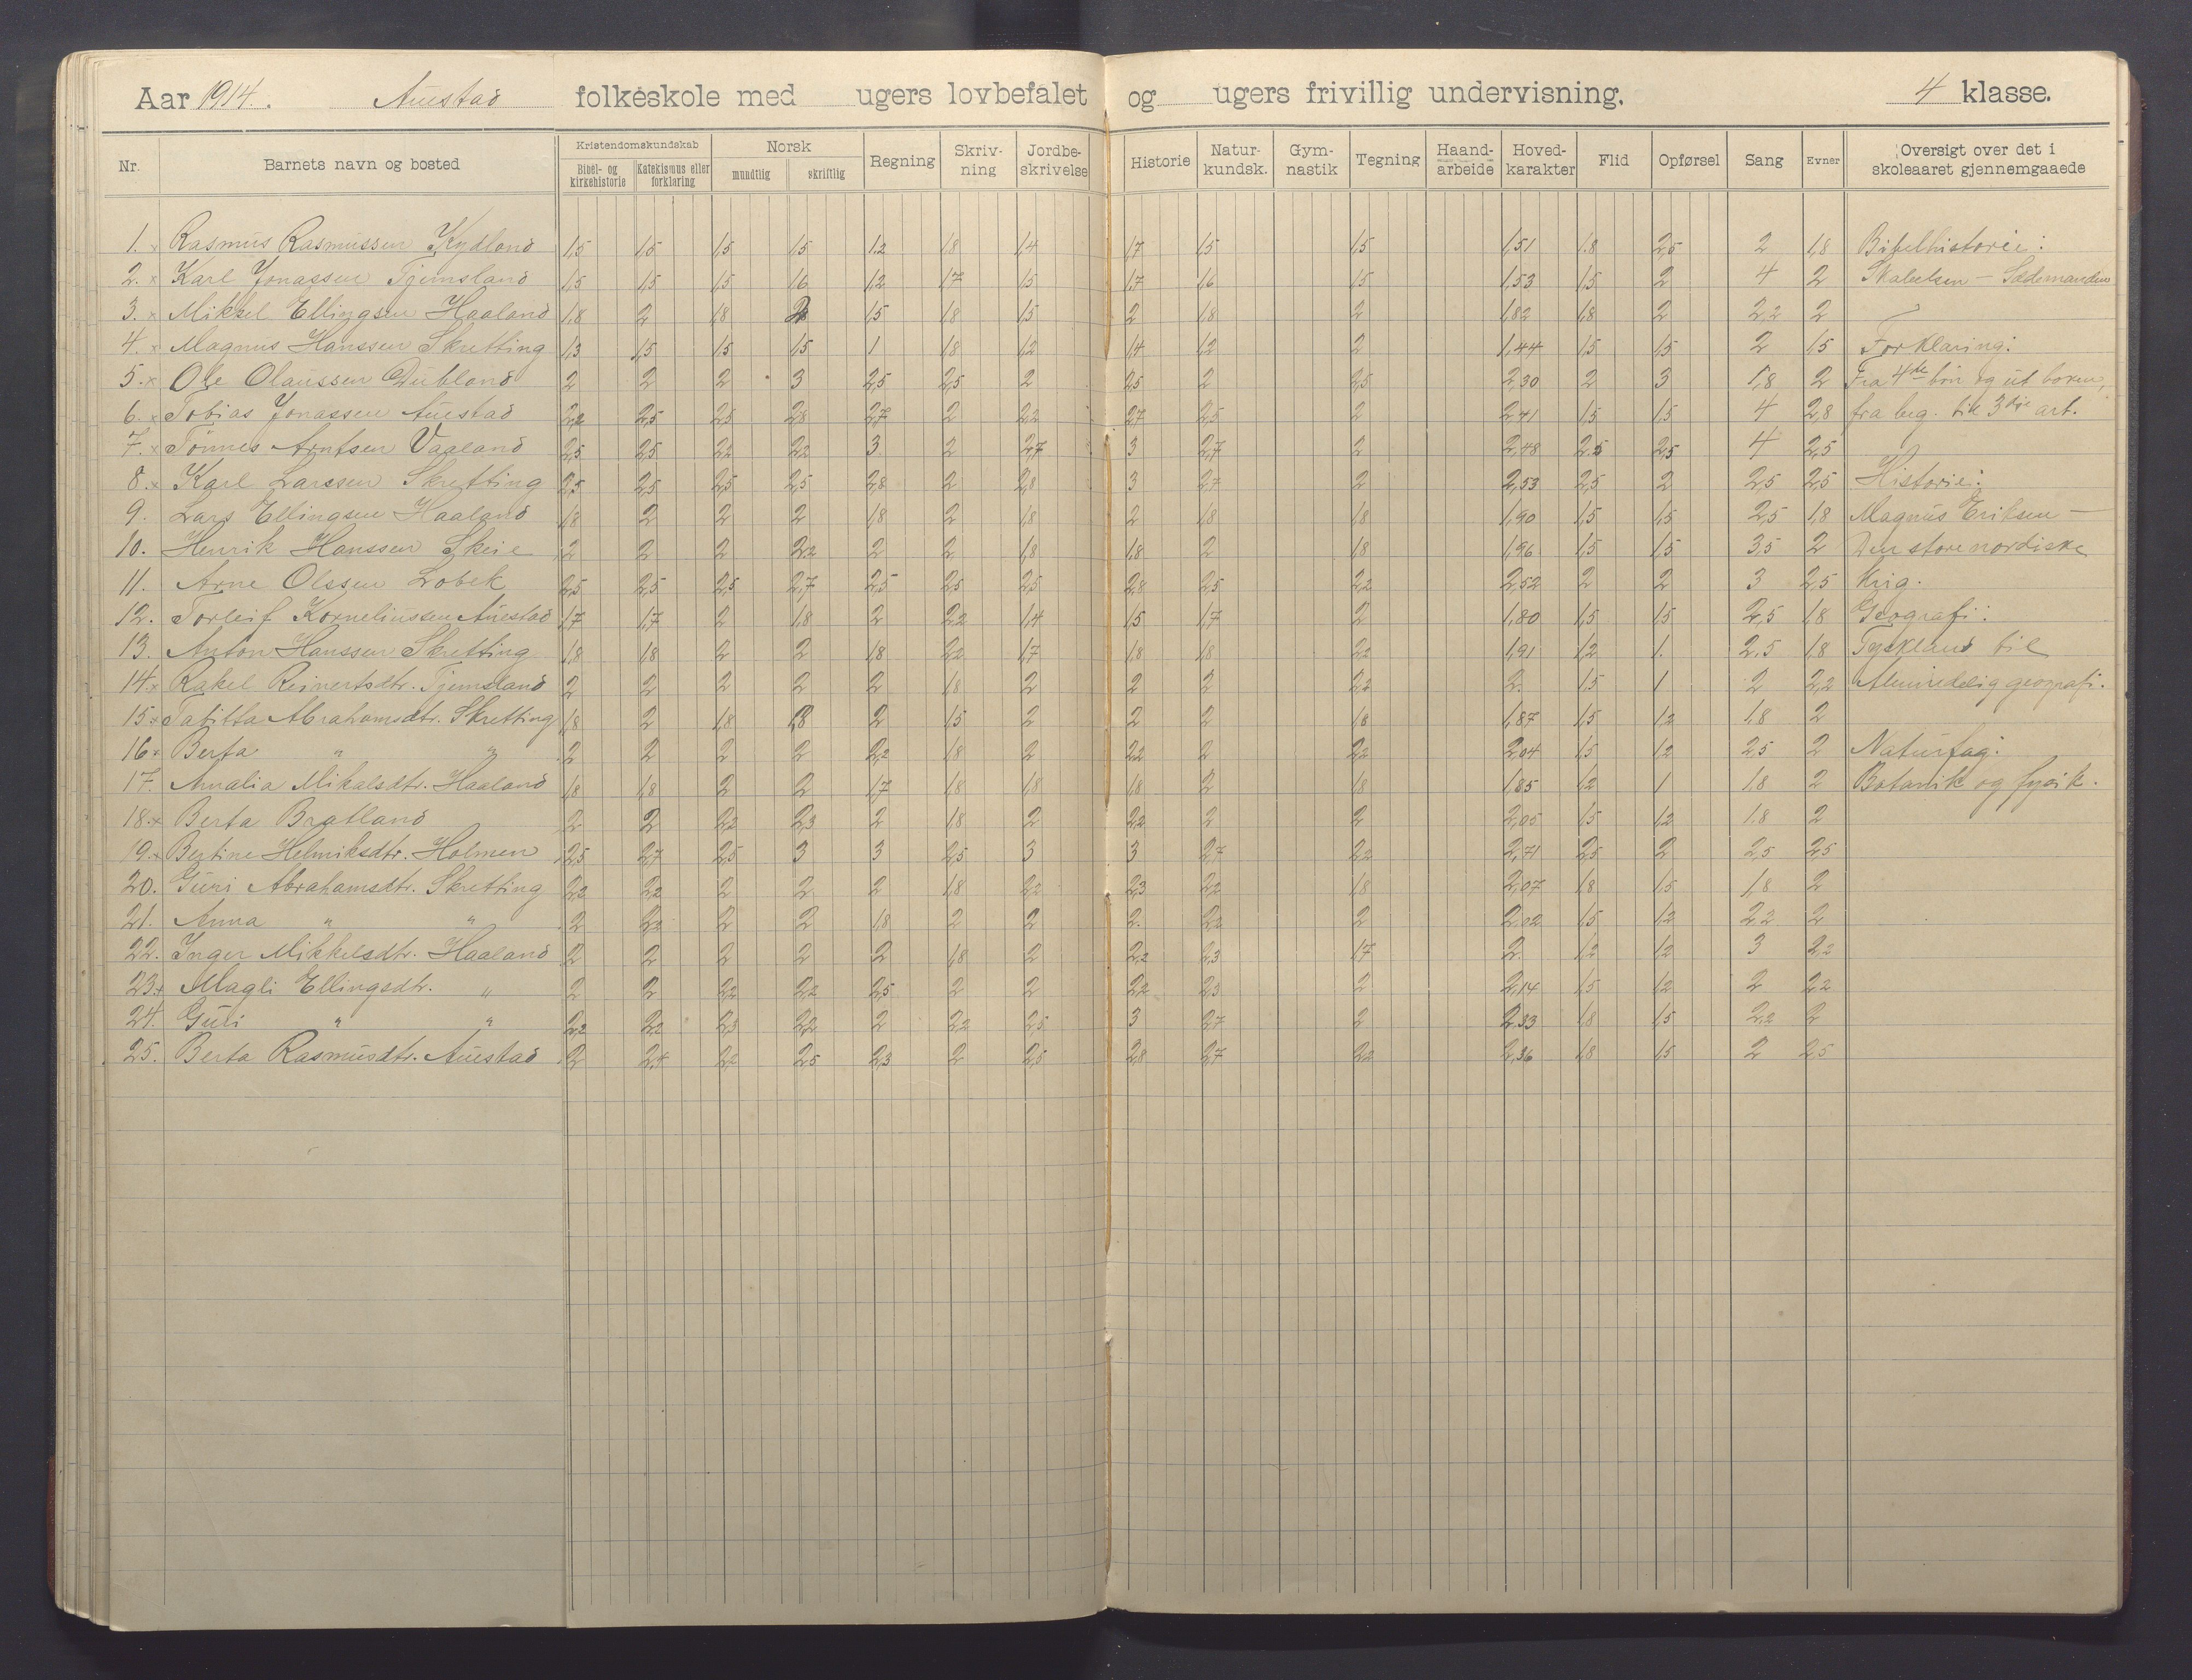 Aar 1914. Auestad folkeskole med ugers lovbefalet og ugers frivillig undervisning. 4 klasse.
Nr. Barnets navn og bosted Kristendomskundskab Bibel- og kirkehistorie Katekismus eller forklaring Norsk mundtlig skriftlig Regning Skriv-ning Jordbe-skrivelse Historie Natur-kundsk. Gym-nastik Tegning Haand-arbeide Hoved-karakter Flid Opførsel Sang Evner Oversigt over det i skoleaaret gjennemgaaede
1. x Rasmus Rasmussen Kydland 1,5 1,5 1,5 1,5 1,2 1,8 1,4 1,7 1,5 1,5 1,51 1,8 2,5 2 1,8 Bibelhistorie:
2. x Karl Jonassen Tjemsland 1,5 1,5 1,5 1,6 1,2 1,7 1,5 1,7 1,6 1,5 1,53 1,5 2 4 2 Skabelsen - Sædemanden
3. x Mikkel Ellingsen Haaland 1,8 2 1,8 2 1,5 1,8 1,5 2 1,8 2 1,82 1,8 2 2,2 2
4. x Magnus Hanssen Skretting 1,3 1,5 1,5 1,5 1 1,8 1,2 1,4 1,2 2 1,44 1,5 1,5 2 1,5 Forklaring:
5. x Ole Olaussen Dubland 2 2 2 3 2,5 2,5 2 2,5 2 2,5 2,30 2 3 1,8 2 Fra 4de bøn og ut boken,
6. x Tobias Jonassen Auestad 2,2 2,5 2,5 2,8 2,7 2 2,2 2,7 2,5 2 2,41 1,5 1,5 4 2,8 fra beg. til 3dje art.
7. x Tønnes Arntsen Vaaland 2,5 2,5 2,2 2,2 3 2 2,7 3 2,7 2 2,48 2,5 2,5 4 2,5
8. x Karl Larssen Skretting 2,5 2,5 2,5 2,5 2,8 2 2,8 3 2,7 2 2,53 2,5 2 2,5 2,5 Historie:
9. Lars Ellingsen Haaland 1,8 2 2 2 1,8 2 1,8 2 1,8 1,8 1,90 1,5 1,5 2,5 1,8 Magnus Eriksen -
10. Henrik Hanssen Skeie 2 2 2 2,2 2 2 1,8 1,8 2 1,8 1,96 1,5 1,5 3,5 2 Den store nordiske
11. Arne Olssen Lobek 2,5 2,5 2,5 2,7 2,5 2,5 2,5 2,8 2,5 2,2 2,52 2 2 3 2,5 Krig.
12. Torleif Korneliussen Auestad 1,7 1,7 2 1,8 2 2,2 1,4 1,5 1,7 2 1,80 1,5 1,5 2,5 1,8 Geografi:
13. Anton Hanssen Skretting 1,8 1,8 2 2 1,8 2,2 1,7 1,8 1,8 2,2 1,91 1,2 1. 2,5 1,8 Tyskland til
14. x Rakel Reinertsdtr. Tjemsland 2 2 2 2 2 1,8 2 2 2 2,2 2. 1,5 1 2 2,2 Almindelig geografi.
15. x Tabitta Abrahamsdtr. Skretting 1,8 2 1,8 1,8 2 1,5 2 2 2 1,8 1,87 1,5 1,2 1,8 2
16. x Berta " " 2 2 2 2 2,2 1,8 2 2,2 2 2,2 2,04 1,5 1,2 2,5 2 Naturfag:
17. Amalia Mikalsdtr. Haaland 1,8 1,8 2 2 1,7 1,8 1,8 1,8 2 1,8 1,85 1,2 1 1,8 2 Botanik og fysik.
18. x Berta Bratland 2 2 2,2 2,3 2 1,8 2 2,2 2 2 2,05 1,5 1,2 1,8 2
19. x Bertine Helmiksdtr. Holmen 2,5 2,7 2,5 3 3 2,5 3 3 2,7 2,2 2,71 2,5 2 2,5 2,5
20. Guri Abrahamsdtr. Skretting 2,2 2,2 2 2 2 1,8 2,2 2,3 2,2 1,8 2,07 1,8 1,5 1,8 2
21. Anna " " 2 2,2 2 2 1,8 2 2 2. 2,2 2 2,02 1,5 1,2 2,2 2
22. Inger Mikkelsdtr. Haaland 2 2 2 2 2 1,8 2 2,2 2,3 1,7 2. 1,2 1,2 3 2,2
23. x Magli Ellingsdtr. " 2 2 2,2 2,2 2,5 2 2 2,2 2,3 2 2,14 1,5 1,2 2 2,2
24. Guri " " 2,2 2,2 2,3 2,2 2 2,2 2,5 3 2,7 2 2,33 1,8 1,5 2,2 2
25. Berta Rasmusdtr. Auestad 2 2,4 2,2 2,5 2,3 2 2,5 2,8 2,7 2,2 2,36 1,8 1,5 2 2,5